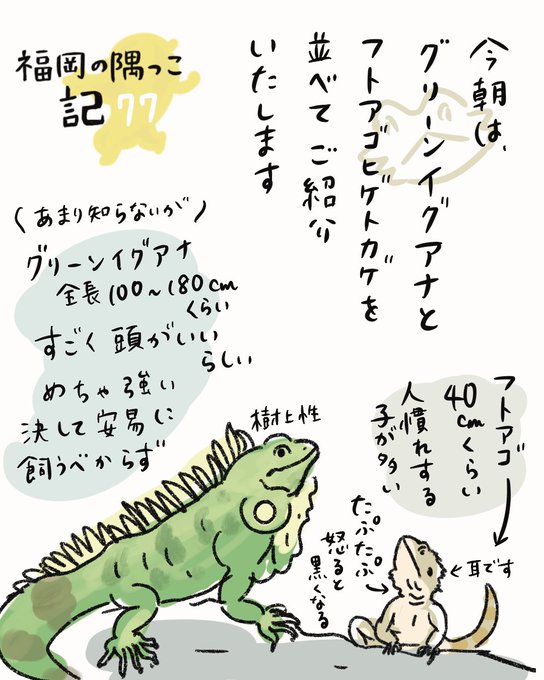 福岡の隅っこ
記 77
今朝は、
グリーンイグアナと
フトアゴヒゲトカゲを
並べてご紹介
いたします
(あまり知らないが)
グリーンイグアナ
全長100〜180cm
くらい
すごく頭がいい
らしい
めちゃ強い
決して安易に
飼うべからず
樹上性
フトアゴ
40cmくらい
人慣れする
子が多い
たぷたぷ
怒ると
黒くなる
耳です